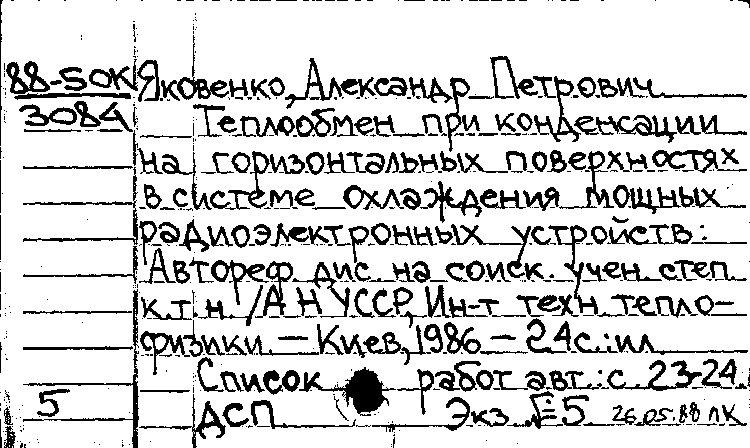 88-50К Яковенко, Александр Петрович
3084 Теплообмен при конденсации
на горизонтальных поверхностях
в системе охлаждения мощных
радиоэлектронных устройств:
Автореф. дис. на соиск. учен. степ.
к.т.н. /АН УССР, Ин-т техн. тепло-
физики. — Киев, 1986 — 24с.: ил.
Список работ авт.: с. 23-24.
5 ДСП. Экз. №5 26.05.88 ЛК